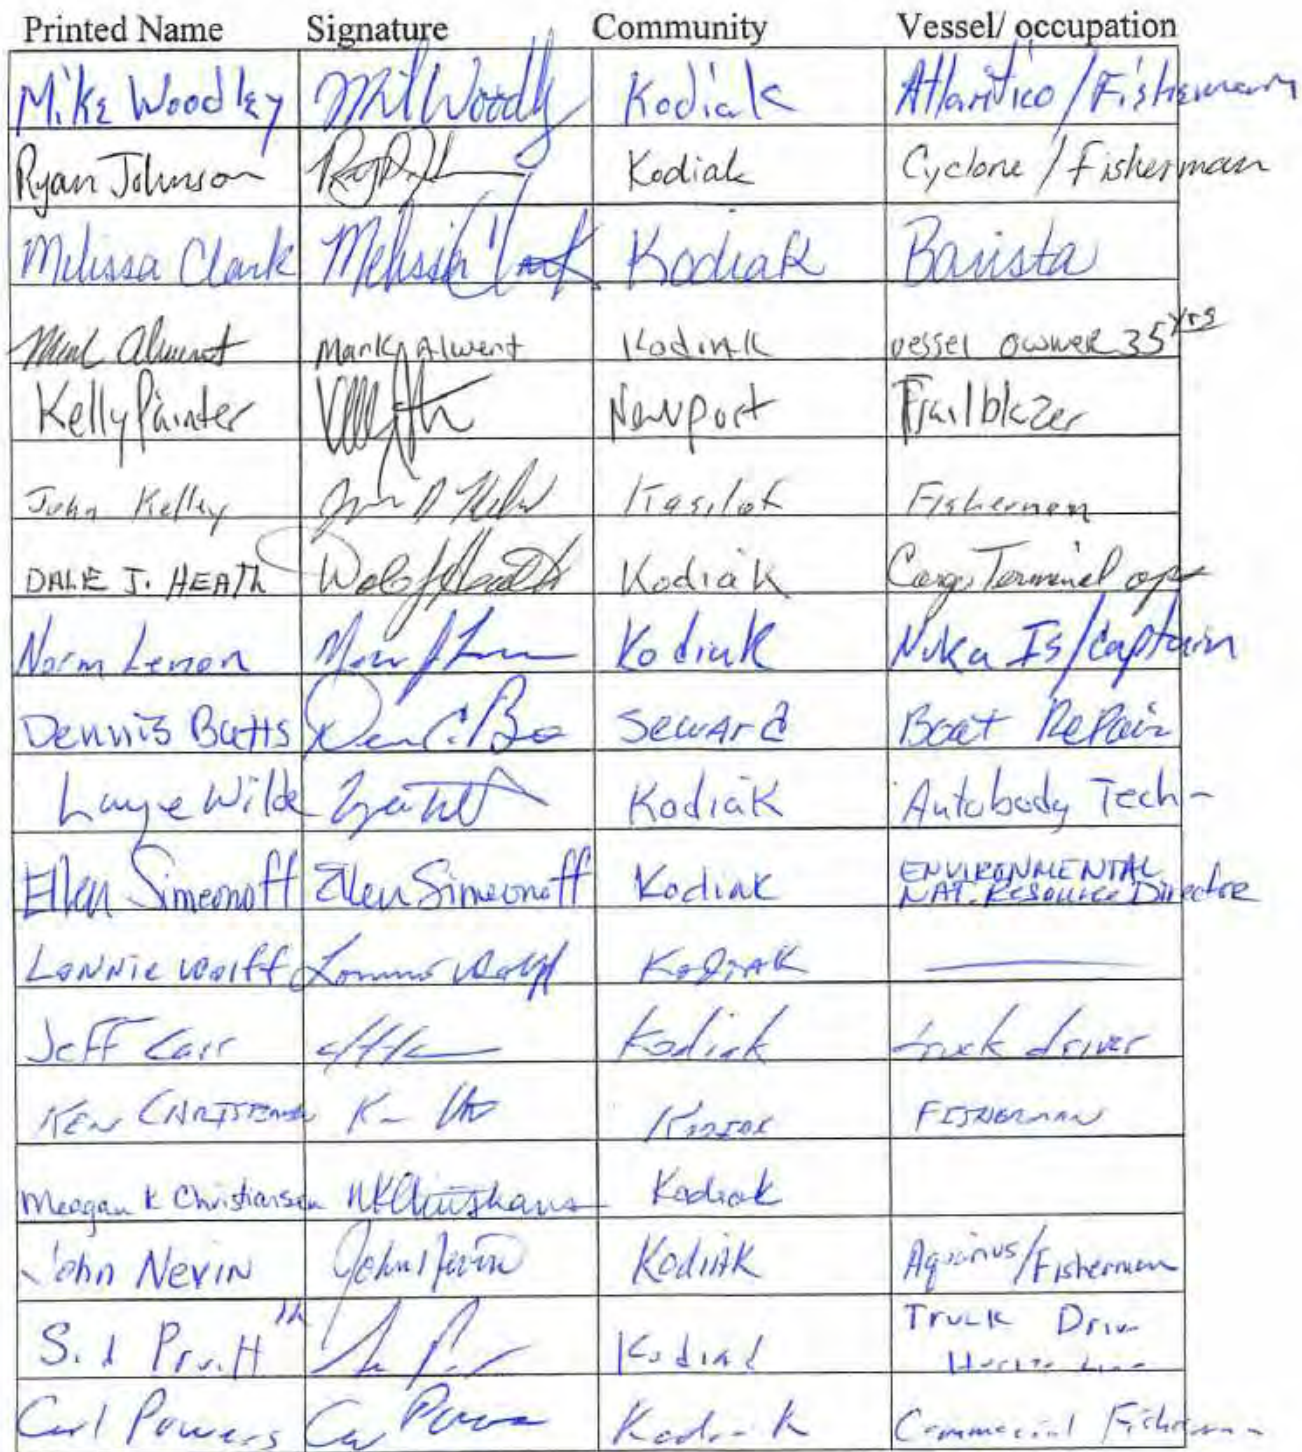 Printed Name Signature Community Vessel/ occupation
Mike Woodley Mik Woodly Kodiak Atlantico / Fisherman
Ryan Johnson Kodiak Cyclone / Fisherman
Melissa Clark Melissa Clark Kodiak Barista
Mark Alwert Mark Alwert Kodiak vessel owner 35 yrs
Kelly Painter Newport Trailblazer
John Kelley Kasilof Fisherman
DALE J. HEATH Kodiak Cargo Terminal ops
Norm Lenon Kodiak Nuka Is/Captain
Dennis Butts Seward Boat Repair
Wilde Kodiak Autobody Tech-
Ellen Simeonoff Ellen Simeonoff Kodiak ENVIRONMENTAL
NAT. Resource Director
Lonnie Wolff Lonnie Wolff Kodiak
Jeff Carr Kodiak truck driver
Ken Kodiak FISHERMAN
Meagan K Christiansen MKChristiansen Kodiak
John Nevin John Nevin Kodiak Aquarius/Fisherman
Sid Pruitt Kodiak Truck
Carl Powers Powers Kodiak Commercial Fisherman